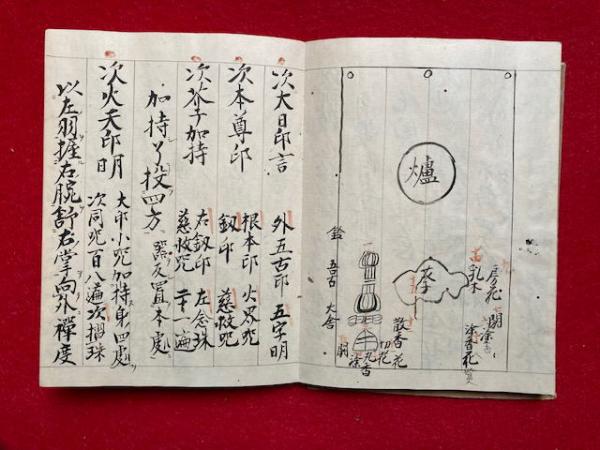 爐
房花
乳木
閼
塗香
散香
花
切花
丸香
鈴 五古
次大日印言 外五古印 五字明
次本尊印 根本印 火界咒
釼印 慈救咒
次芥子加持 右釼印 左念珠
慈救咒 一遍
加持了投四方 器反置本處
次火天印明 大印小咒加持身四處
次同咒百八遍次摺珠
以左羽握右腕舒右掌向外禪度